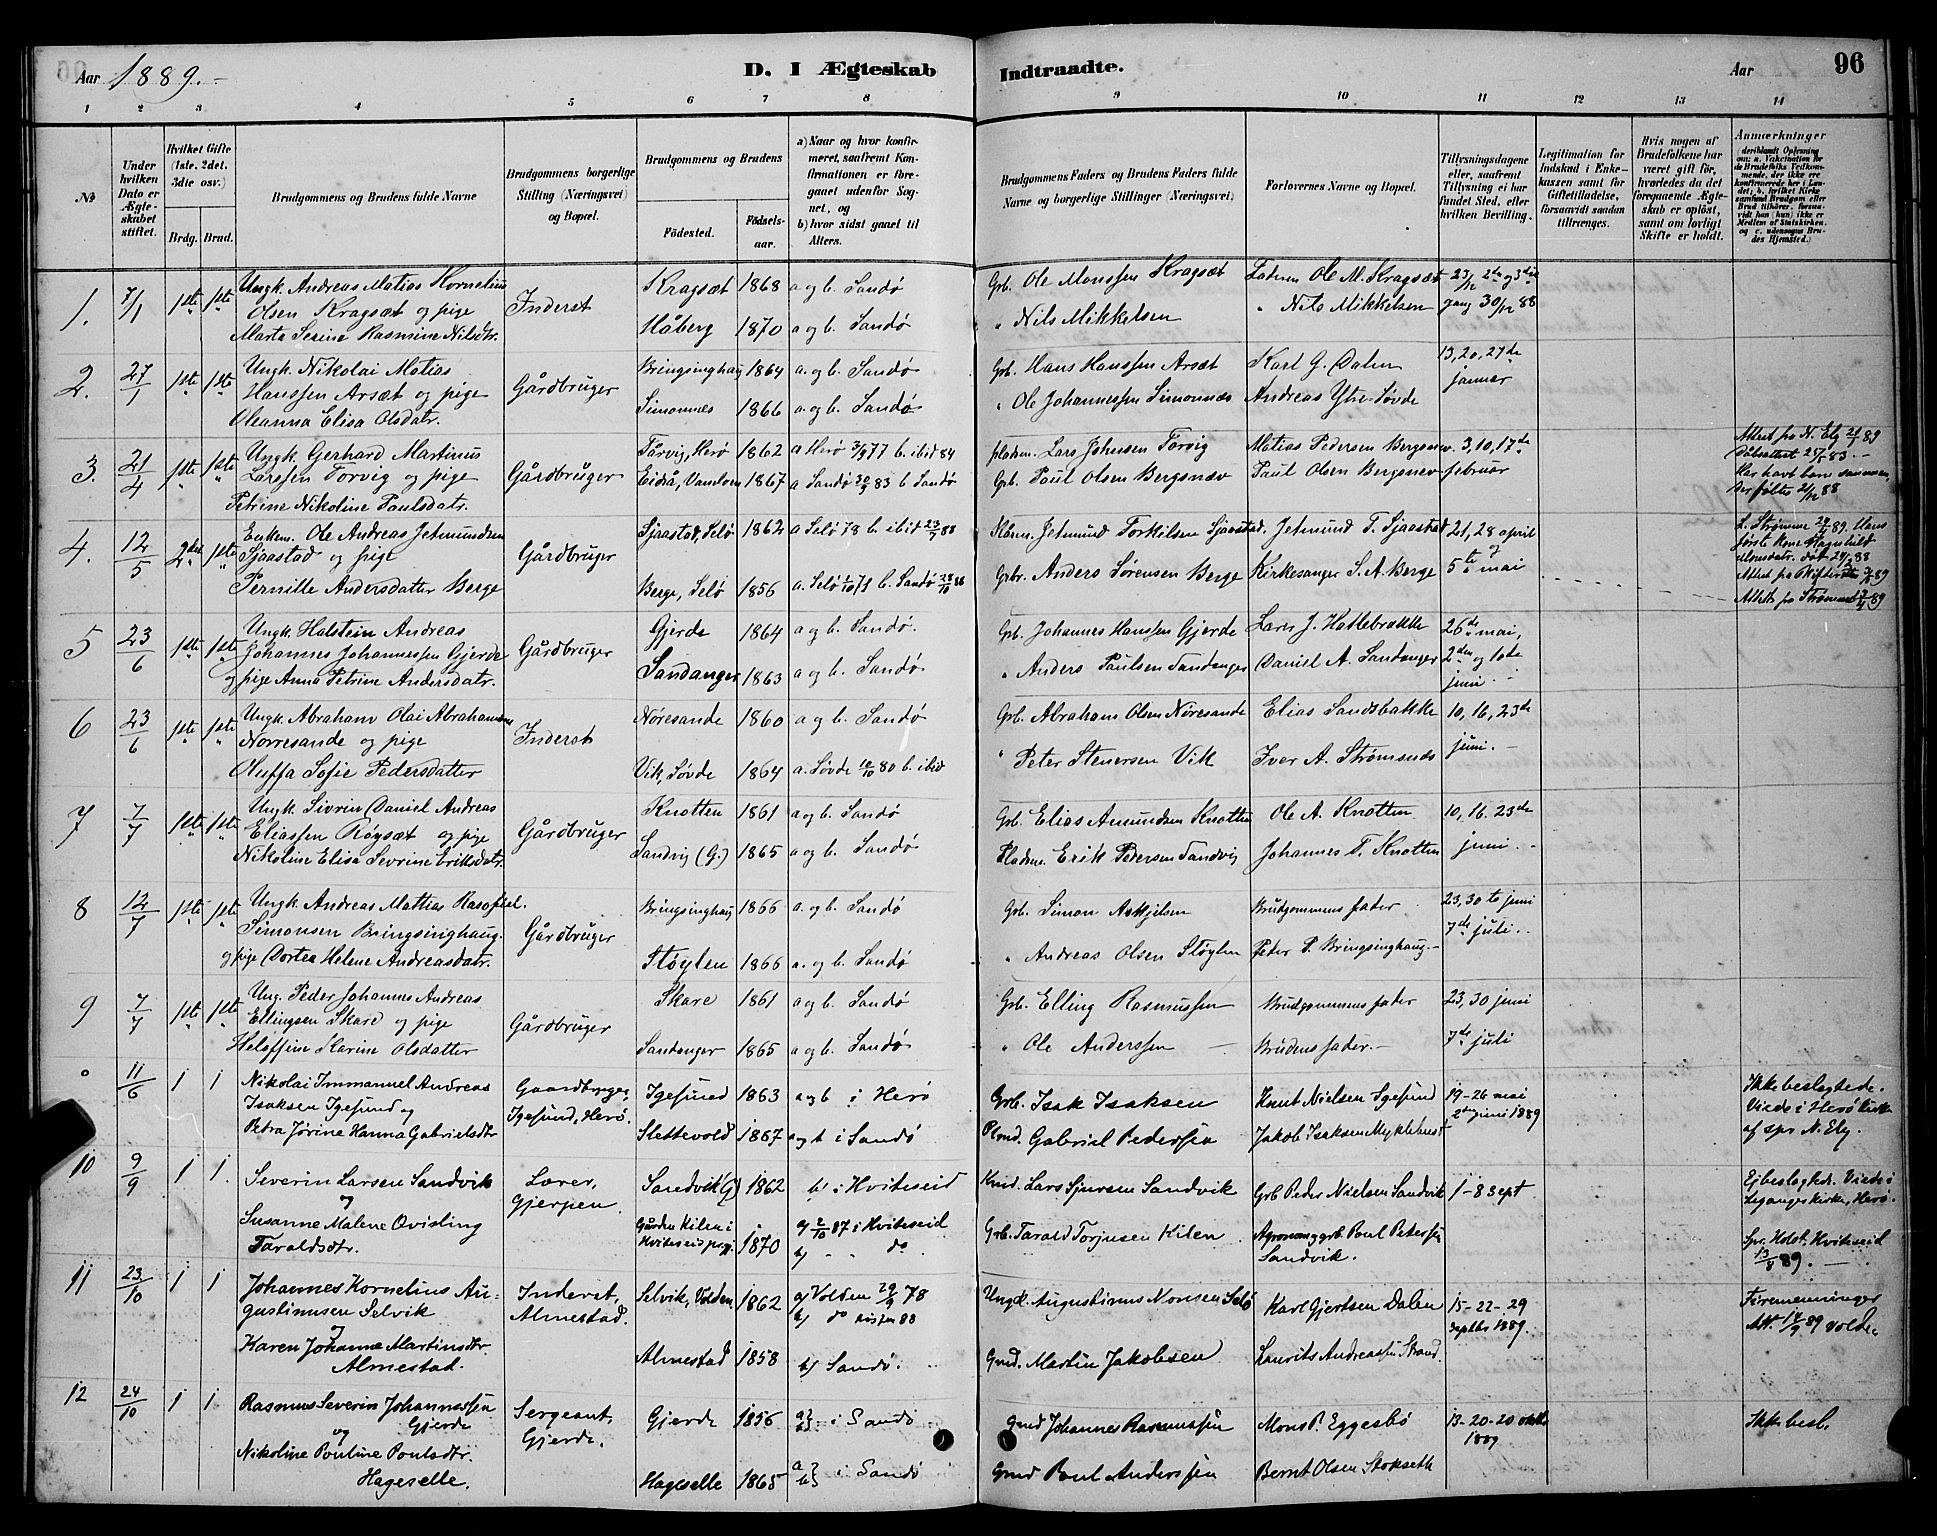 Aar 1889.-
D. I Ægteskab
Indtraadte.
Aar
96
1 2 3 4 5 6 7 8 9 10 11 12 13 14
No
Under hvilken Dato er Ægteskabet stiftet.
Hvilket Gifte (1ste, 2det, 3dte osv.)
Brdg. Brud.
Brudgommens og Brudens fulde Navne
Brudgommens borgerlige Stilling (Næringsvei) og Bopæl.
Brudgommens og Brudens
Fødested. Fødselsaar.
a) Naar og hvor konfirmeret, saafremt Konfirmationen er foregaaet udenfor Sognet, og
b) hvor sidst gaaet til Alters.
Brudgommens Faders og Brudens Faders fulde Navne og borgerlige Stillinger (Næringsvei)
Forlovernes Navne og Bopæl.
Tillysningsdagene eller, saafremt Tillysning ei har fundet Sted, efter hvilken Bevilling.
Legitimation for Indskud i Enkekassen samt for Giftetilladelse, forsaavidt saadan tiltrænges.
Hvis nogen af Brudefolkene har været gift før, hvorledes da det foregaaende Ægteskab er opløst, samt om lovligt Skifte er holdt.
Anmærkninger
1. 7/1 1ste 1ste Ungk. Andreas Matias Kornelius
Olsen Kragsæt og pige
Marta Serine Rasmine Nilsdtr.
Inderst
Kragsæt 1868 a og b. Sandø
Håberg 1870 a og b. Sandø
Grb. Ole Monssen Kragsæt
" Nils Mikkelsen
Faderen Ole M. Kragsæt
" Nils Mikkelsen
23/12 2den og 3die
gang 30/12 88
2. 27/1 1ste 1ste Ungk. Nikolai Matias
Hanssen Arsæt og pige
Oleanna Elisa Olsdatr.
Gårdbruger
Bringsinghaug 1864 a. og b. Sandø
Simonnes 1866 a. og b. Sandø
Grb. Hans Hanssen Arsæt
" Ole Johannessen Simonnes
Karl G. Dalen
Andreas Ytre-Søvde
13, 20, 27de
januar
3. 21/4 1ste 1ste Ungk. Gerhard Martinus
Larssen Torvig og pige
Petrine Nikoline Paulsdatr.
Gårdbruger
Tårvig, Herø 1862 a Herø 3/9 77 b. ibid 84
Eidså, Vanelven 1867 a Sandø 30/9 83 b Sandø
pladsm. Lars Johnsen Torvig
Grb. Paul Olsen Bergsnev
Matias Pedersen Bergsnev
Paul Olsen Bergsnev
3, 10, 17de
februar
Attest fra N. Ely 21/1 89
Har havt barn sammen,
der fødtes 21/12 88
4. 12/5 2den 1ste Enkem. Ole Andreas Jetmundsen
Sjaastad og pige
Pernille Andersdatter Berge
Gårdbruger
Sjaastad, Selø 1862 a Selø 78 b. ibid 23/7 88
Berge, Selø 1856 a. Selø 1/10 71 b. Sandø 28/10 86
Jetmund Torkilsen Sjaastad.
Grbr. Anders Sørensen Berge
Jetmund T. Sjaastad
Kirkesanger S. A. Berge
21, 28 april
og
5te mai
5 23/6 1ste 1ste Ungk. Halstein Andreas
Johannes Johannessen Gjerde
og pige Anna Petrine Andersdatr.
Gårdbruger
Gjerde 1864 a og b. Sandø.
Sandanger 1863 a og b. Sandø
Grb. Johannes Hanssen Gjerde
" Anders Paulsen Sandanger
Lars J. Hattebrække
Daniel A. Sandanger
26de mai,
2den og 10de
juni.
6 23/6 1ste 1ste Ungk. Abraham Olai Abrahamsen
Norresande og pige
Oluffa Sofie Pedersdatter
Inderst
Nøresande 1860 a og b. Sandø
Vik, Søvde 1864 a. Søvde 10/10 80 b. ibid
Grb. Abraham Olsen Nøresande
" Peter Stenersen Vik
Elias Sandsbakke
Iver A. Strømsnes
10, 16, 23de
juni.
7 7/7 1ste 1ste Ungk. Sivrin Daniel Andreas
Eliassen Røysæt og pige
Nikoline Elisa Sevrine Eriksdatr.
Gårdbruger
Knotten 1861 a og b. Sandø
Sandvig (G.) 1865 a og b. Sandø
Grb. Elias Amundsen Knotten
Pladsm. Erik Pedersen Sandvig
Ole A. Knotten
Johannes T. Knotten
10, 16. 23de
juni.
8 12/7 1ste 1ste Ungk. Andreas Mathias
Simonsen Bringsinghaug
og pige Dortea Helene Andreasdatr.
Gårdbruger
Bringsinghaug 1866 a. og b. Sandø
Støylen 1866 a. og b. Sandø
Grb. Simon Askjelsen
" Andreas Olsen Støylen
Brudgommens fader
Peder P. Bringsinghaug.-
23, 30te juni
7de juli.
9 7/7 1ste 1ste Ung. Peder Johannes Andreas
Ellingsen Skare og pige
Karine Olsdatter
Gårdbruger
Skare 1861 a og b. Sandø
Sandanger 1865 a og b. Sandø
Grb. Elling Rasmussen
" Ole Anderssen
Brudgommens fader
Brudens fader.-
23, 30 juni
7de juli
° 11/6 1 1 Nikolai Immanuel Andreas
Isaksen Igesund og
Petra Jørine Hanna Gabrielsdtr
Gaardbruger,
Igesund, Herø.
Igesund 1863 a og b i Herø
Slettevold 1867 a og b i Sandø
Grb. Isak Isaksen
Plmd. Gabriel Pedersen
Knut Nielsen Igesund
Jakob Isaksen Myklebust
19-26 mai
2den juni 1889
Ikke beslegtede.
Viede i Herø Kirke
af spr N. Ely.
10 9/9 1 1. Severin Larsen Sandvik
og
Susanne Malene Qvisling
Taraldsdtr.
Lærer,
Gjerpen.
Sandvik (G) 1862 b) i Hviteseid
Gården Kilen i
Hviteseid prgj. 1870 a) 2/10 87 i Hviteseid
b) " do
Lars Sjursen Sandvik
Grb. Tarald Torjusen Kilen
Grb Peder Nielsen Sandvik
Agronom og grb. Poul Petersen
Sandvik.
1-8 sept
Ej beslegtede. Viede i
Leganger kirke, Herø.
Spr. Holst, Hviteseid
13/8 89.
11 23/10 1 1 Johannes Kornelius Au-
gustinusen Selvik
og
Karen Johanne Martinsdtr.
Almestad.
Inderst,
Almestad.
Selvik, Volden 1862 a) Volden 29/9 78
b) do høsten 88
Almestad 1858 b) Sandø.
Ungk. Augustinus Monsen Selø
Gmd. Martin Jakobsen
Karl Gjertsen Dalen
Laurits Andreassen Strand.
15-22-29
septbr 1889.
Firemenninger
Att. 14/9 89 Volden
12 24/10 1 1 Rasmus Severin Johannessen
Gjerde
og
Nikoline Pouline Poulsdtr.
Hageselle.
Sergeant,
Gjerde.
Gjerde 1856 a) b) i Sandø
Hageselle 1865 a) b) i Sandø
Gmd Johannes Rasmussen
Gmd Poul Anderssen
Mons P. Eggesbø
Bernt Olsen Stokseth
13-20-20 oktbr
1889
Ikke besl.